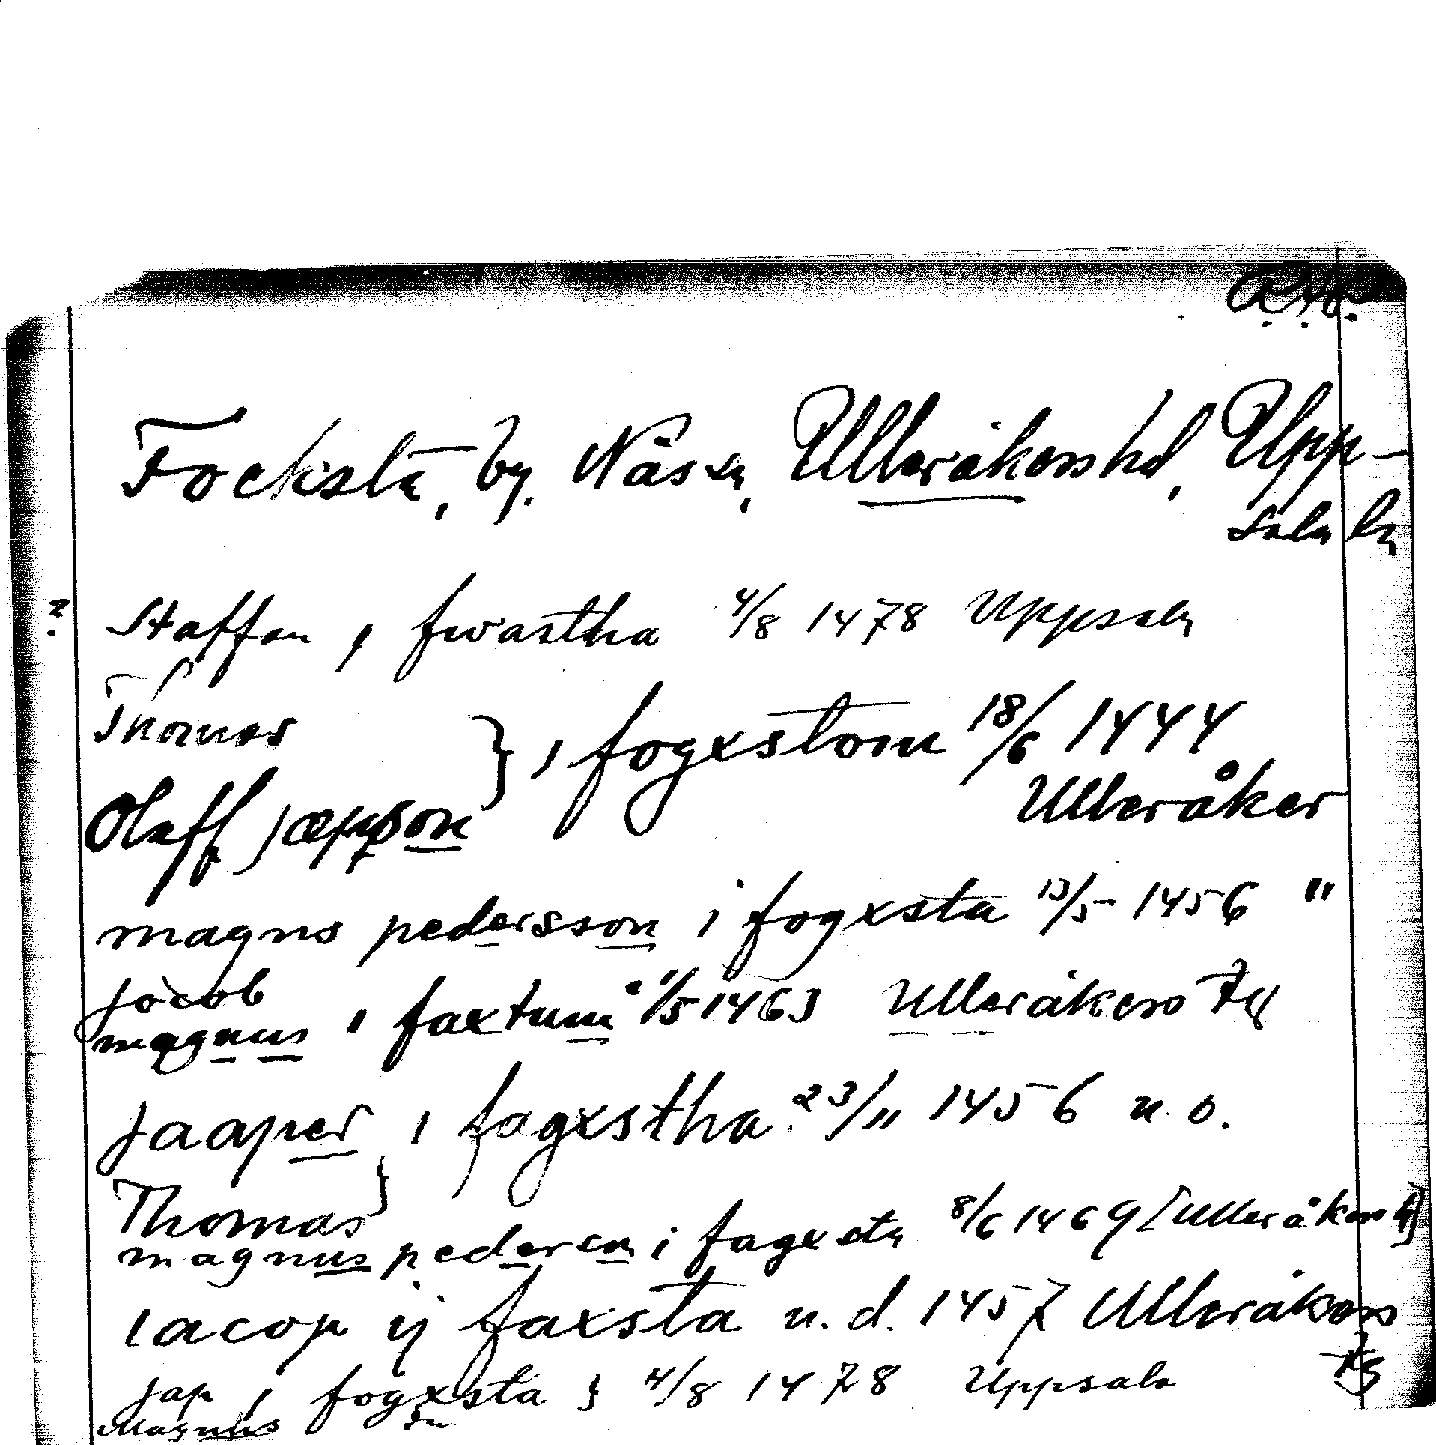 R.A.P.
Focksta, by. Näs sn, Ulleråkers hd, Upp-
sala ln
? Staffan i fwastha 4/8 1478 Uppsala
Thomas
Olaff jæpson } i fogxstom 18/6 1444
Ulleråker
magns pedersson i fogxsta 13/5 1456 "
jacob
magnus i faxtum 11/5 1463 Ulleråkers tg
jaaper i fagxstha 23/11 1456 u.o.
Thomas }
magnus pedersen i fagxsta 8/6 1469 [Ulleråkers]
iacop ij faxsta u.d. 1457 Ulleråkers
tg
jap i fogxsta } 4/8 1478 Uppsala
Magnus